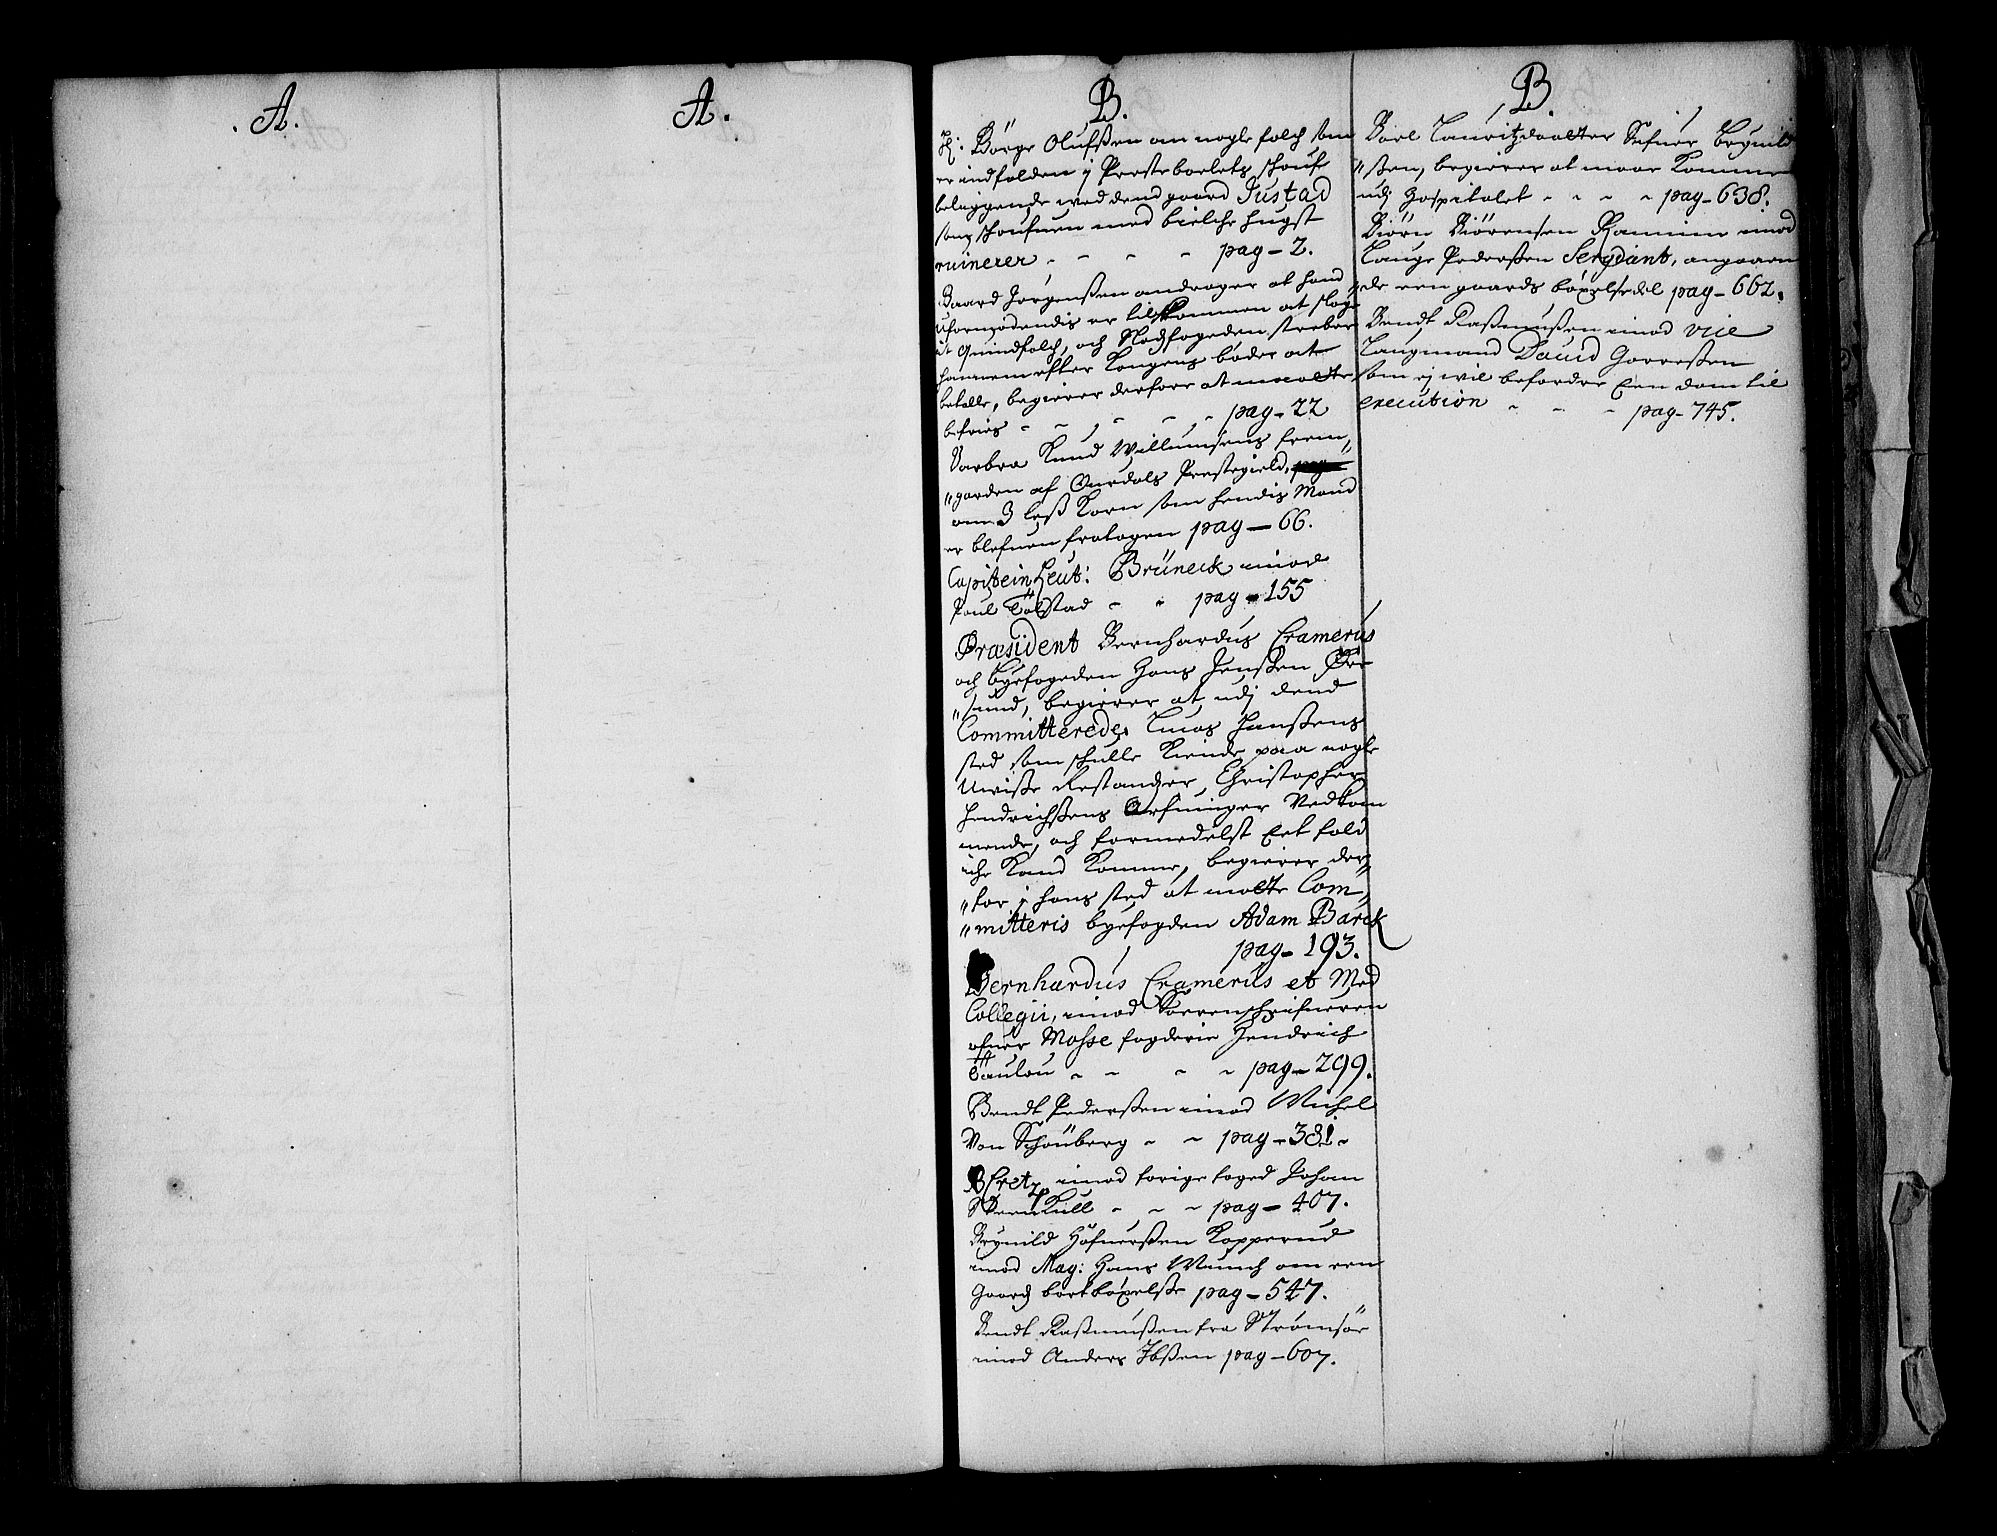 A.
A.
B.
Hr: Börge Olufssen om nogle folch som
er indfalden j Prestebolets schouf
beliggende wed dend gaard Justad
som schoufuen med bielche hugst
ruinerer - - - - pag - 2.
Baard Jörgenssen andrager at hand
uformodendis er tilkommen at slage
it Quindfolch, och Stedfogeden streber
hannem efter Kongens böder at
betalle, begierer derfore at maatte
befries - - - - - pag - 22
Barbra Knud Willumsens frem
"garden af Ourdals Prestegield,
om 3 less Korn som hendis Mand
er blefuen fratagen pag - 66.
Capitein Leut: Brüneck imod
Poul Tölstad - - pag - 155
Præsident Bernhardus Cramerus
och byefogeden Hans Jenssen Öre
"sund, begierer at udj dend
Committerede Lucas Janssens
sted som schulle Kiende paa nogle
Uwisse Restandzer, Christopher
Hendrichssens Arfuinger Vedkom
mende, och formedelst Eet fald
iche Kand Komme, begierer der
"for j hans sted at motte Com
"mitteris byefogden Adam Barck
pag - 193.
Bernhardus Cramerus et Med
Collegii, imod Sorenschrifueren
ofuer Mosse fogderie Hendrich
Taulou - - - - pag - 299.
Bendt Pederssen imod Michel
Von Schönberg - - pag - 381 -
Bfretz imod forige foged Johan
Steenkull - - - pag - 407.
Brynild Höfuerssen Kopperud
imod Mag: Hans Munch om een
Gaards bortböxelsse pag - 547.
Bendt Rassmussen fra Strömsöe
imod Anders Ibssen pag - 607.
B.
Boel Lauritzdaatter Sefuer Brynild
"ssen, begierer at maae Komme
udj Hospitalet - - - - pag - 638.
Biörn Biörensen Ramim imod
Lauge Pederssen Sergdant, angaaen
"de een gaards böxelsedel pag - 662.
Bendt Rassmussen imod vice
Laugmand David Gorressen
som ej wil befordre Een dom til
execution - - - pag - 745.